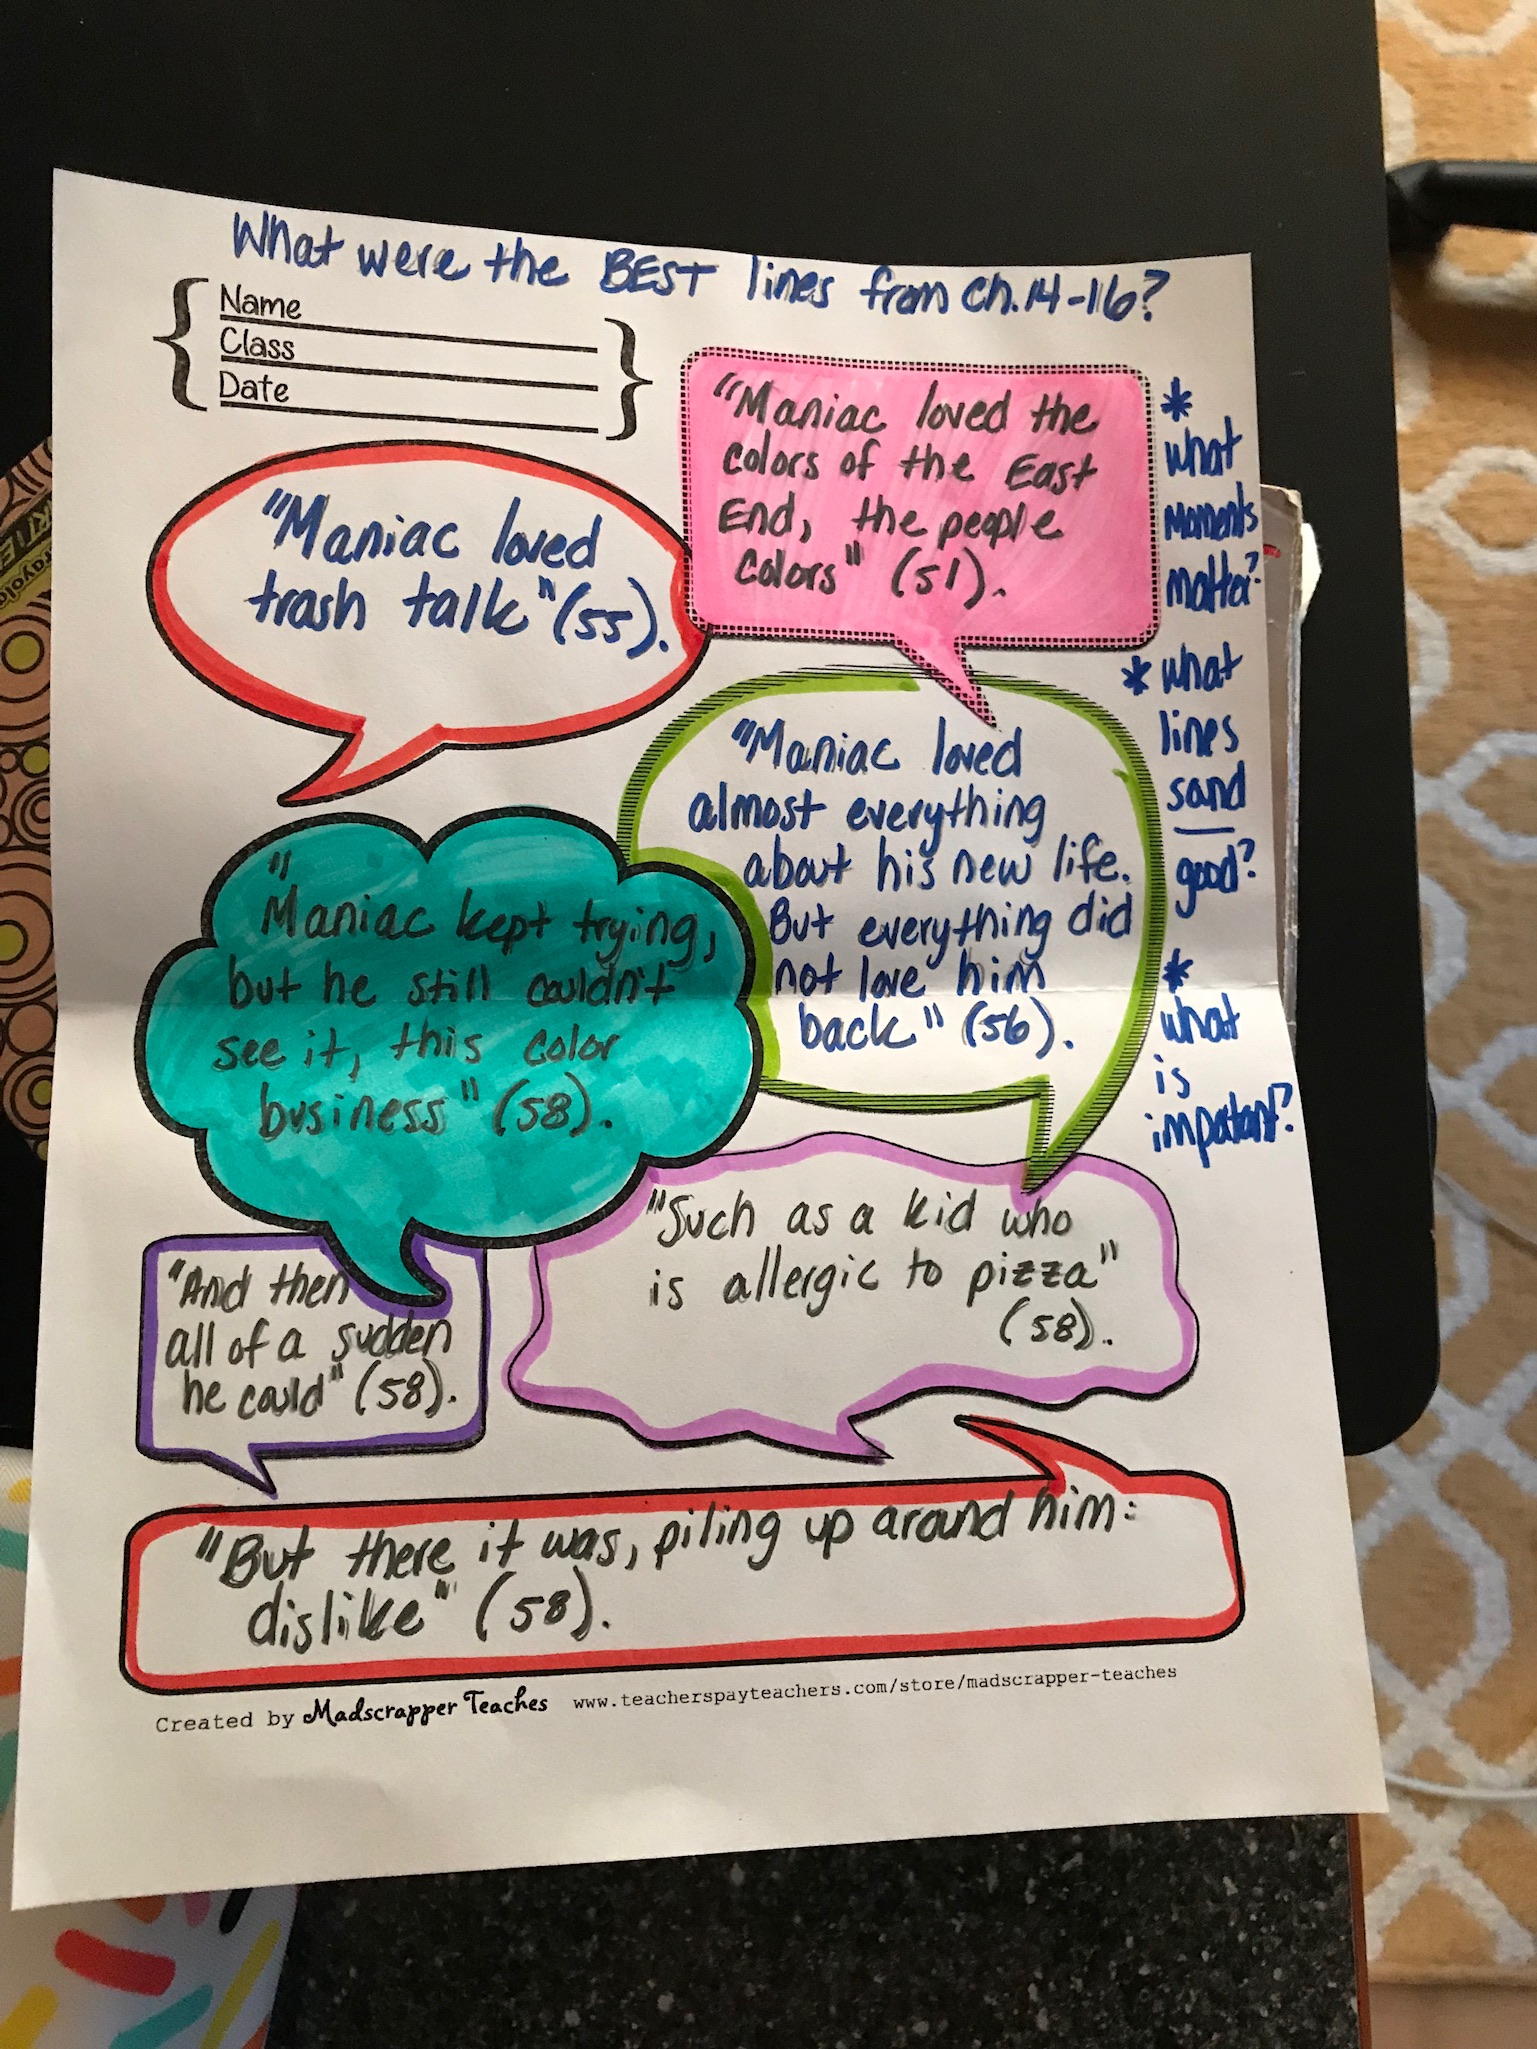 What were the BEST lines from Ch.14-16?
Name
Class
Date
"Maniac loved the
colors of the East
End, the people
colors" (51).
"Maniac loved
trash talk" (55).
"Maniac loved
almost everything
about his new life.
But everything did
not love him
back" (56).
"Maniac kept trying,
but he still couldn't
see it, this color
business" (58).
"Such as a kid who
is allergic to pizza"
(58).
"And then
all of a sudden
he could" (58).
"But there it was, piling up around him:
dislike" (58).
* what
moments
matter?
* what
lines
sound
good?
* what
is
important?
Created by Madscrapper Teaches www.teacherspayteachers.com/store/madscrapper-teaches